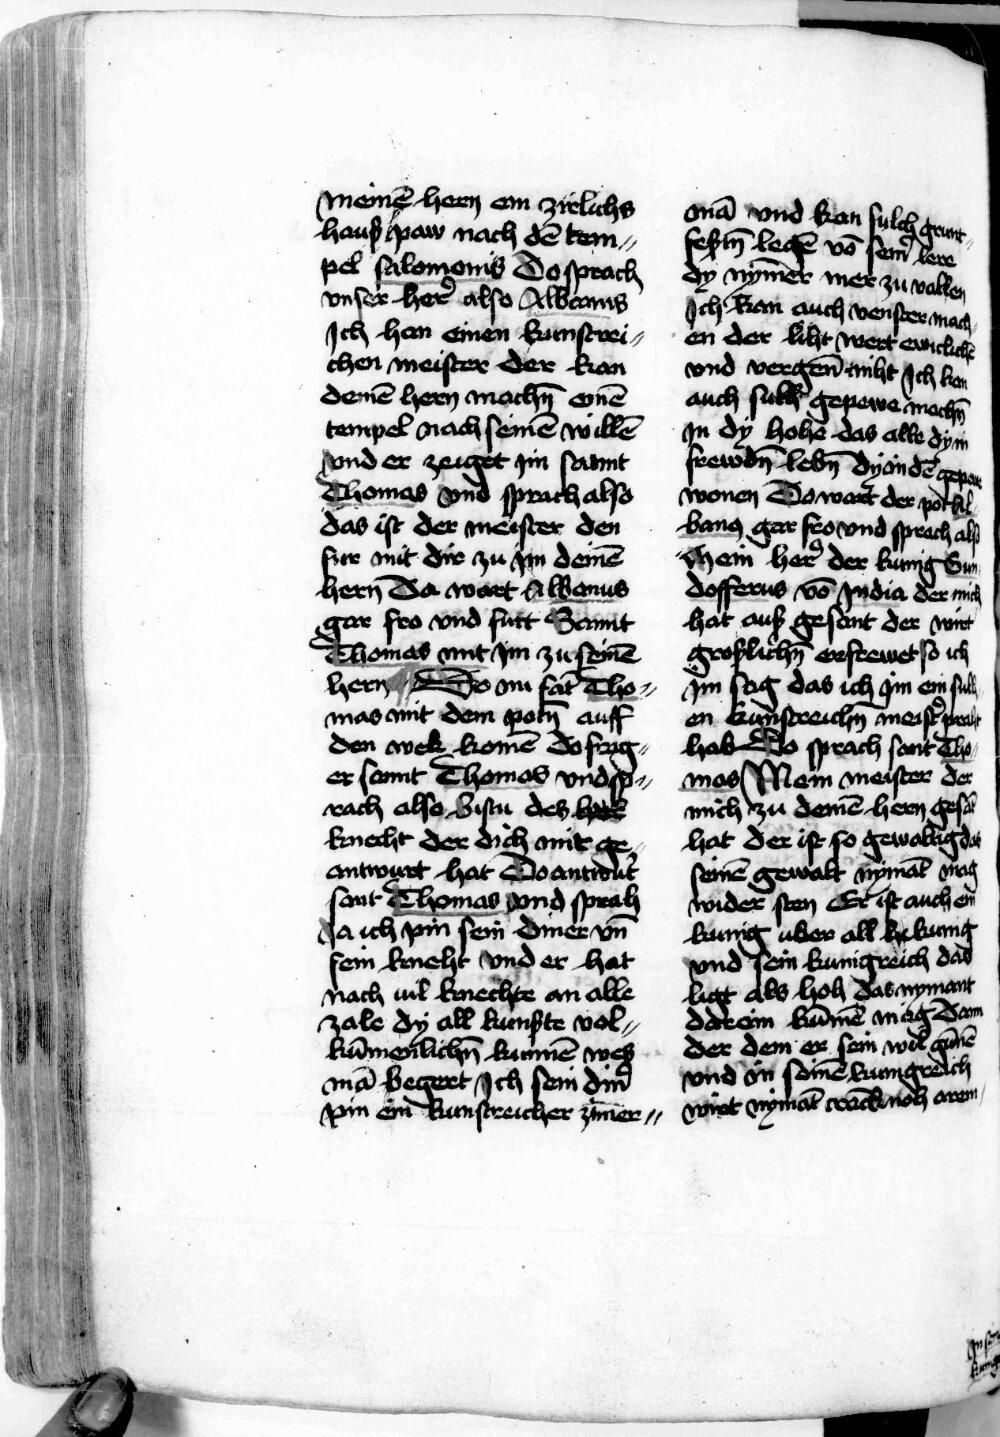 meinē hern ein zirlichs
hauß paw nach dē tem„
pel salomonis Do sprach
vnser her̉ also Albanus
Ich han einen kunstrei„
chen meister der kan
deinē hern machn̄ einē
tempel nach seinē willē
vnd er zeuget im sannt
Thomas vnd sprach also
das ist der meister den
fur mit dir zu im deinē
hern Da wart Albanus
gar fro vnd furt Sannt
Thomas mit im zu seinē
hern Do nu sāt Tho„
mas mit dem potn̄ auff
den wek komē do frag„
er sannt Thomas vnd sp„
rach also Bistu des
knecht der dich mir ge„
antwurt hat Do antwūt
sant Thomas vnd sprah
Ja ich pin sein diner vn̄
sein kneht vnd er hat
nach uil knechte an alle
zale dy all kunste vol„
kūmenlichn̄ kunnē wes
mā begert Ich sein din̉
pin ein kunstreicher zīmer„
mā vnd kan sulch grunt„
festn̄ legē vō sein̉ lere
dy nym̄er mer zu vallen
Ich kan auch venster mach„
en der liht wert ewiclichē
vnd vergen̄ niht Ich kan
auch sulh gepewe machn̄
in dy hohe das alle dy in
frewdn̄ lebn̄ dy in dē gepew
wonen Do wart der pot Al„
banus gar fro vnd sprach also
Mein her̉ der kunig Gun
dofferus vō India der mich
hat auß gesant der wirt
großlichn̄ erfrewet so ich
im sag das ich im ein sulh
en kunstreichn̄ meist̉ praht
hab Do sprach sant Tho„
mas Mein meister der
mich zu deinē hern gesāt
hat der ist so gewaltig das
seinē gewalt nymāt mag
wider sten Er ist auch ein
kunig uber all kunig
vnd sein kunigreich das
ligt als hoh das nymant
darein kūmē mag Dann
der dem er sein wil gūnē
vnd in seinē kunigreich
wirt nymāt krack noh arem